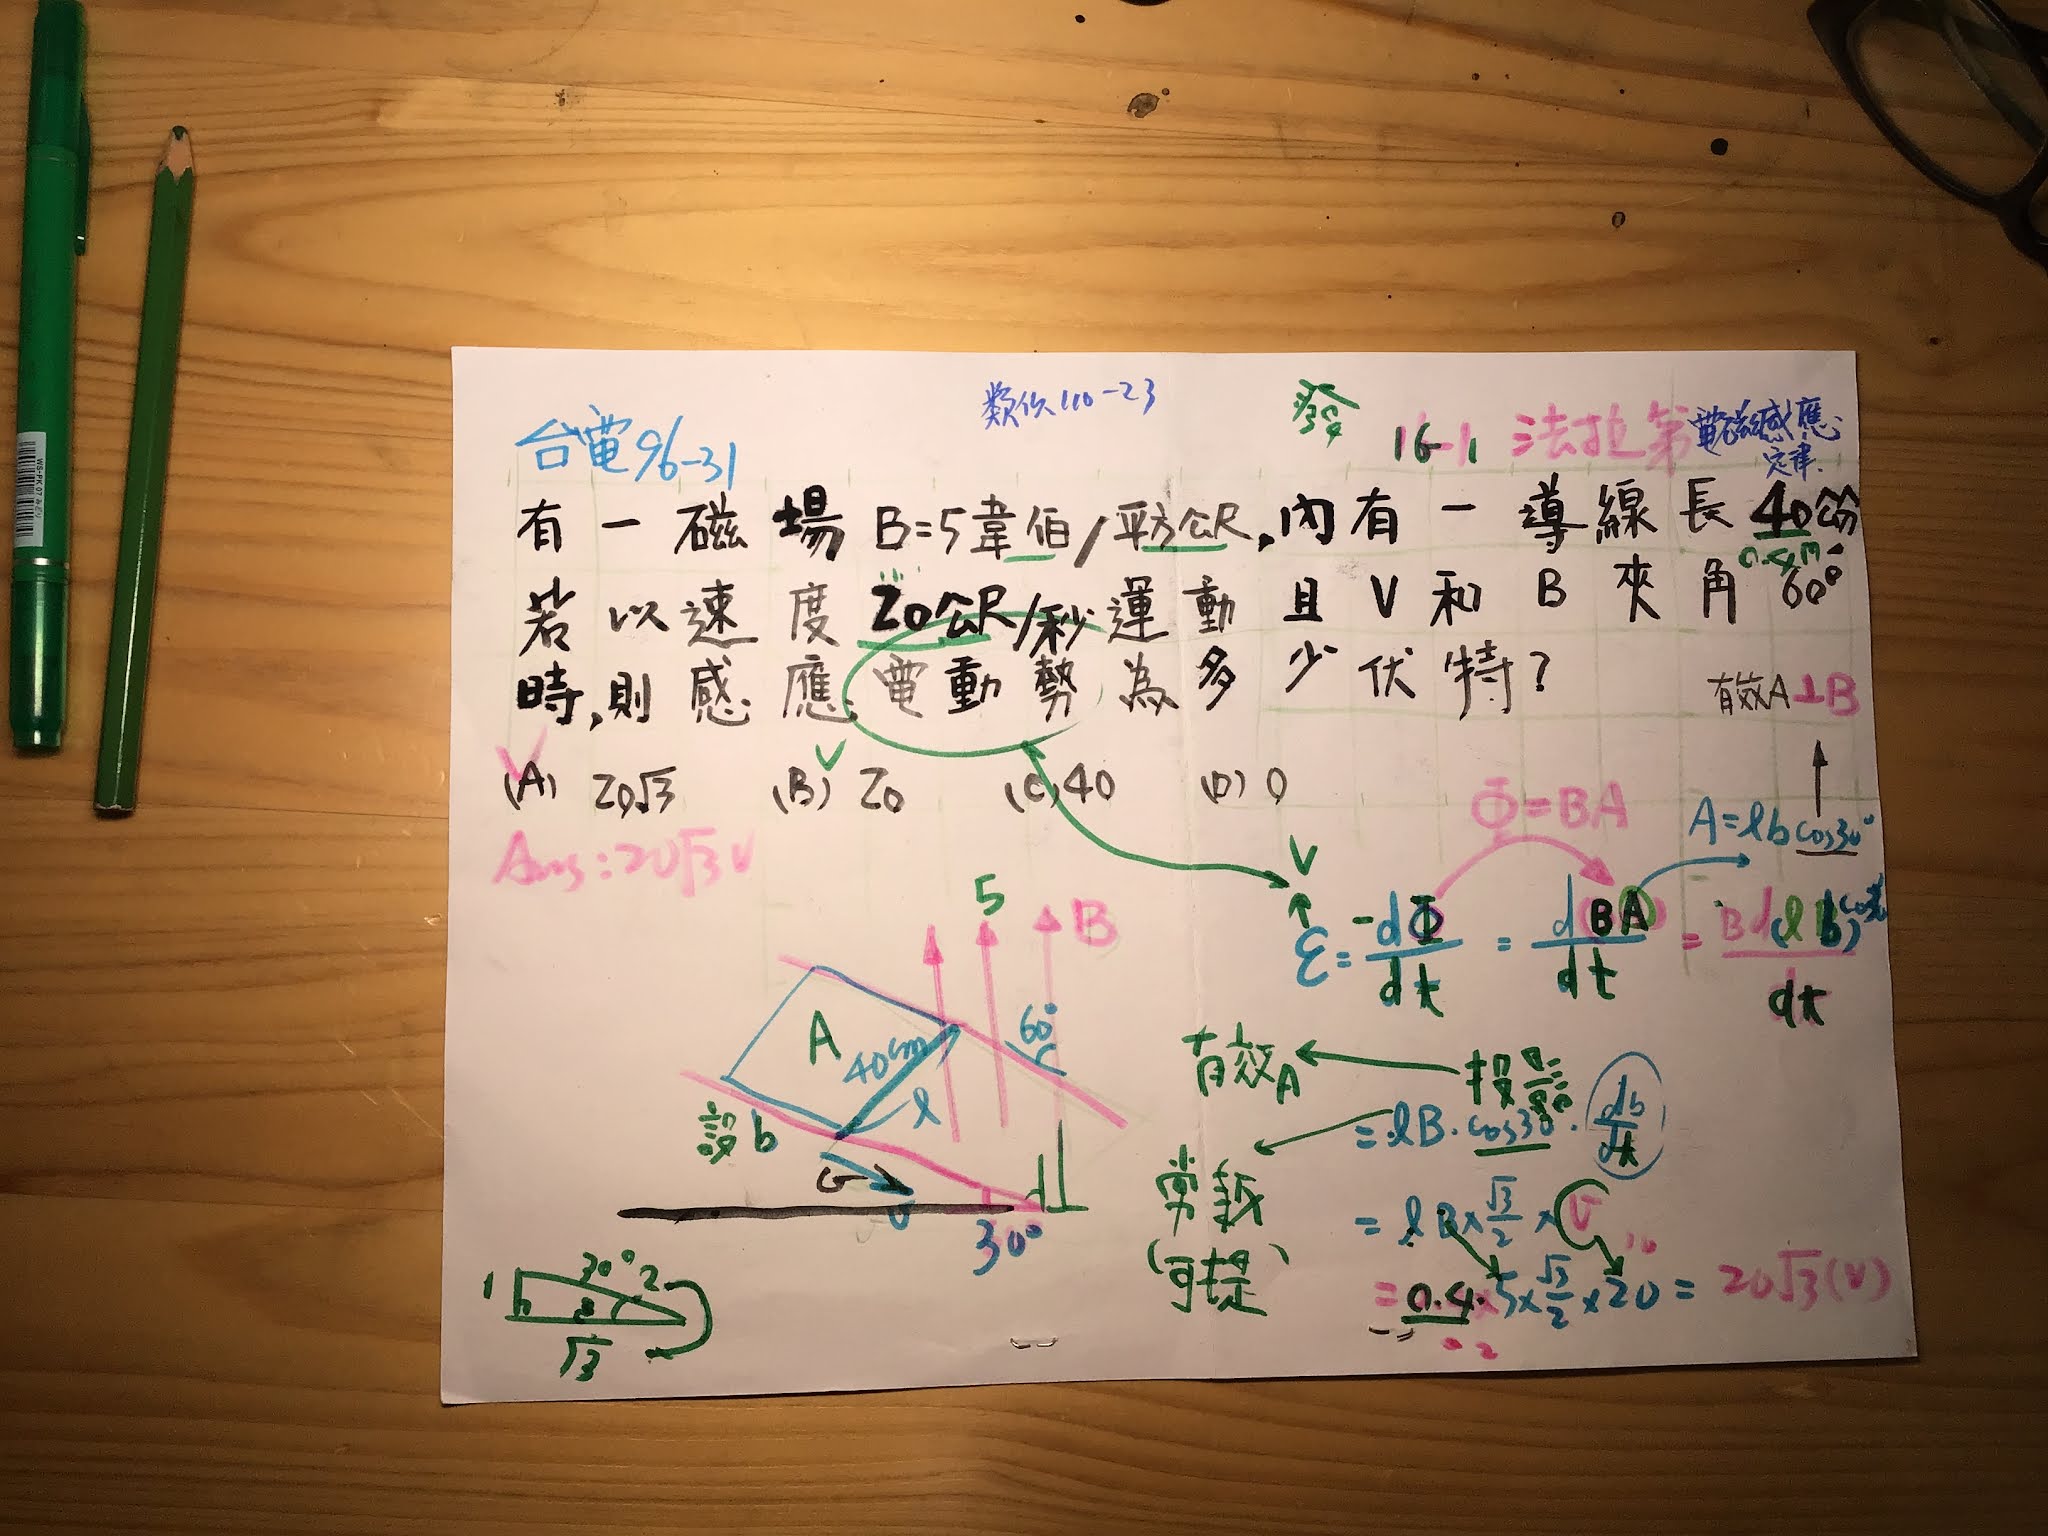 類似110-23
發
台電96-31
16-1 法拉第電磁感應定律.
有一磁場B=5韋伯/平方公尺,內有一導線長40公分
0.4m
若以速度20公尺/秒運動且V和B夾角60°
時,則感應電動勢為多少伏特?
有效A⊥B
(A) 20√3 (B) 20 (C) 40 (D) 0
Ans:20√3V
Φ=BA
A=lb cos30°
V
ε = -dΦ/dt = dBA/dt = Bd(lb)cos30°/dt
5
B
60°
A
40cm
l
設b
v
30°
有效A
投影
=lB·cos30·db/dt
常數
(可提)
=lB×√3/2×v
=0.4×5×√3/2×20=20√3(V)
10
2
1
30°
2
√3